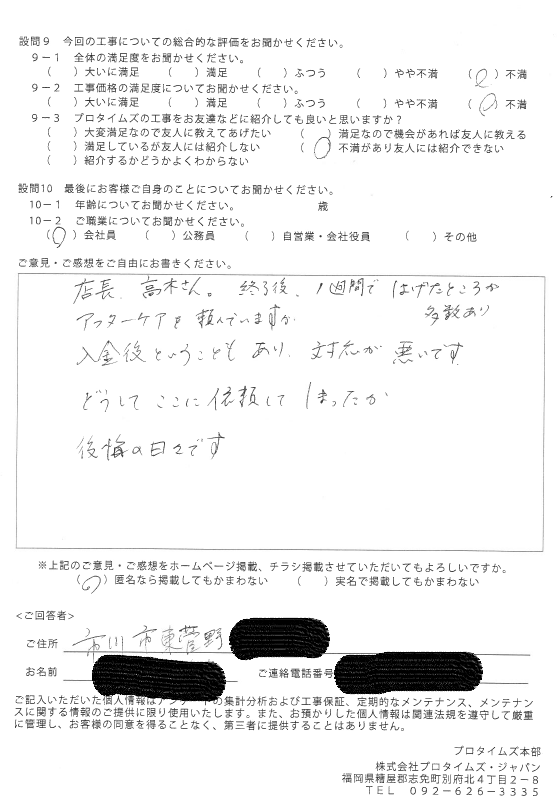 設問９　今回の工事についての総合的な評価をお聞かせください。
９－１　全体の満足度をお聞かせください。
（　）大いに満足　（　）満足　（　）ふつう　（　）やや不満　（○）不満
９－２　工事価格の満足度についてお聞かせください。
（　）大いに満足　（　）満足　（　）ふつう　（　）やや不満　（○）不満
９－３　プロタイムズの工事をお友達などに紹介しても良いと思いますか？
（　）大変満足なので友人に教えてあげたい　（　）満足なので機会があれば友人に教える
（　）満足しているが友人には紹介しない　（○）不満があり友人には紹介できない
（　）紹介するかどうかよくわからない
設問10　最後にお客様ご自身のことについてお聞かせください。
10－１　年齢についてお聞かせください。　歳
10－２　ご職業についてお聞かせください。
（○）会社員　（　）公務員　（　）自営業・会社役員　（　）その他
ご意見・ご感想をご自由にお書きください。
店長、高木さん。終了後、1週間ではげたところが
多数あり
アフターケアを頼んでいますが
入金後ということもあり、対応が悪いです
どうしてここに依頼してしまったか
後悔の日々です
※上記のご意見・ご感想をホームページ掲載、チラシ掲載させていただいてもよろしいですか。
（○）匿名なら掲載してもかまわない　（　）実名で掲載してもかまわない
<ご回答者>
ご住所　市川市東菅野
お名前　ご連絡電話番号
ご記入いただいた個人情報はアンケートの集計分析および工事保証、定期的なメンテナンス、メンテナン
スに関する情報のご提供に限り使用いたします。また、お預かりした個人情報は関連法規を遵守して厳重
に管理し、お客様の同意を得ることなく、第三者に提供することはありません。
プロタイムズ本部
株式会社プロタイムズ・ジャパン
福岡県糟屋郡志免町別府北４丁目２－８
ＴＥＬ　０９２－６２６－３３３５